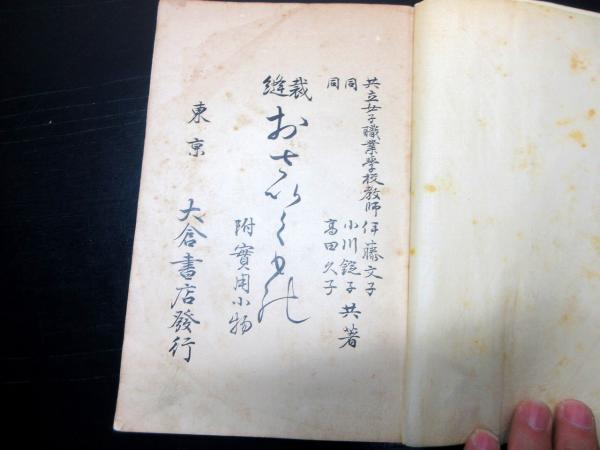 共立女子職業學校教師 伊藤文子
同 小川 共著
同 高田久子
裁縫 おさいくもの
附實用小物
東京 大倉書店發行